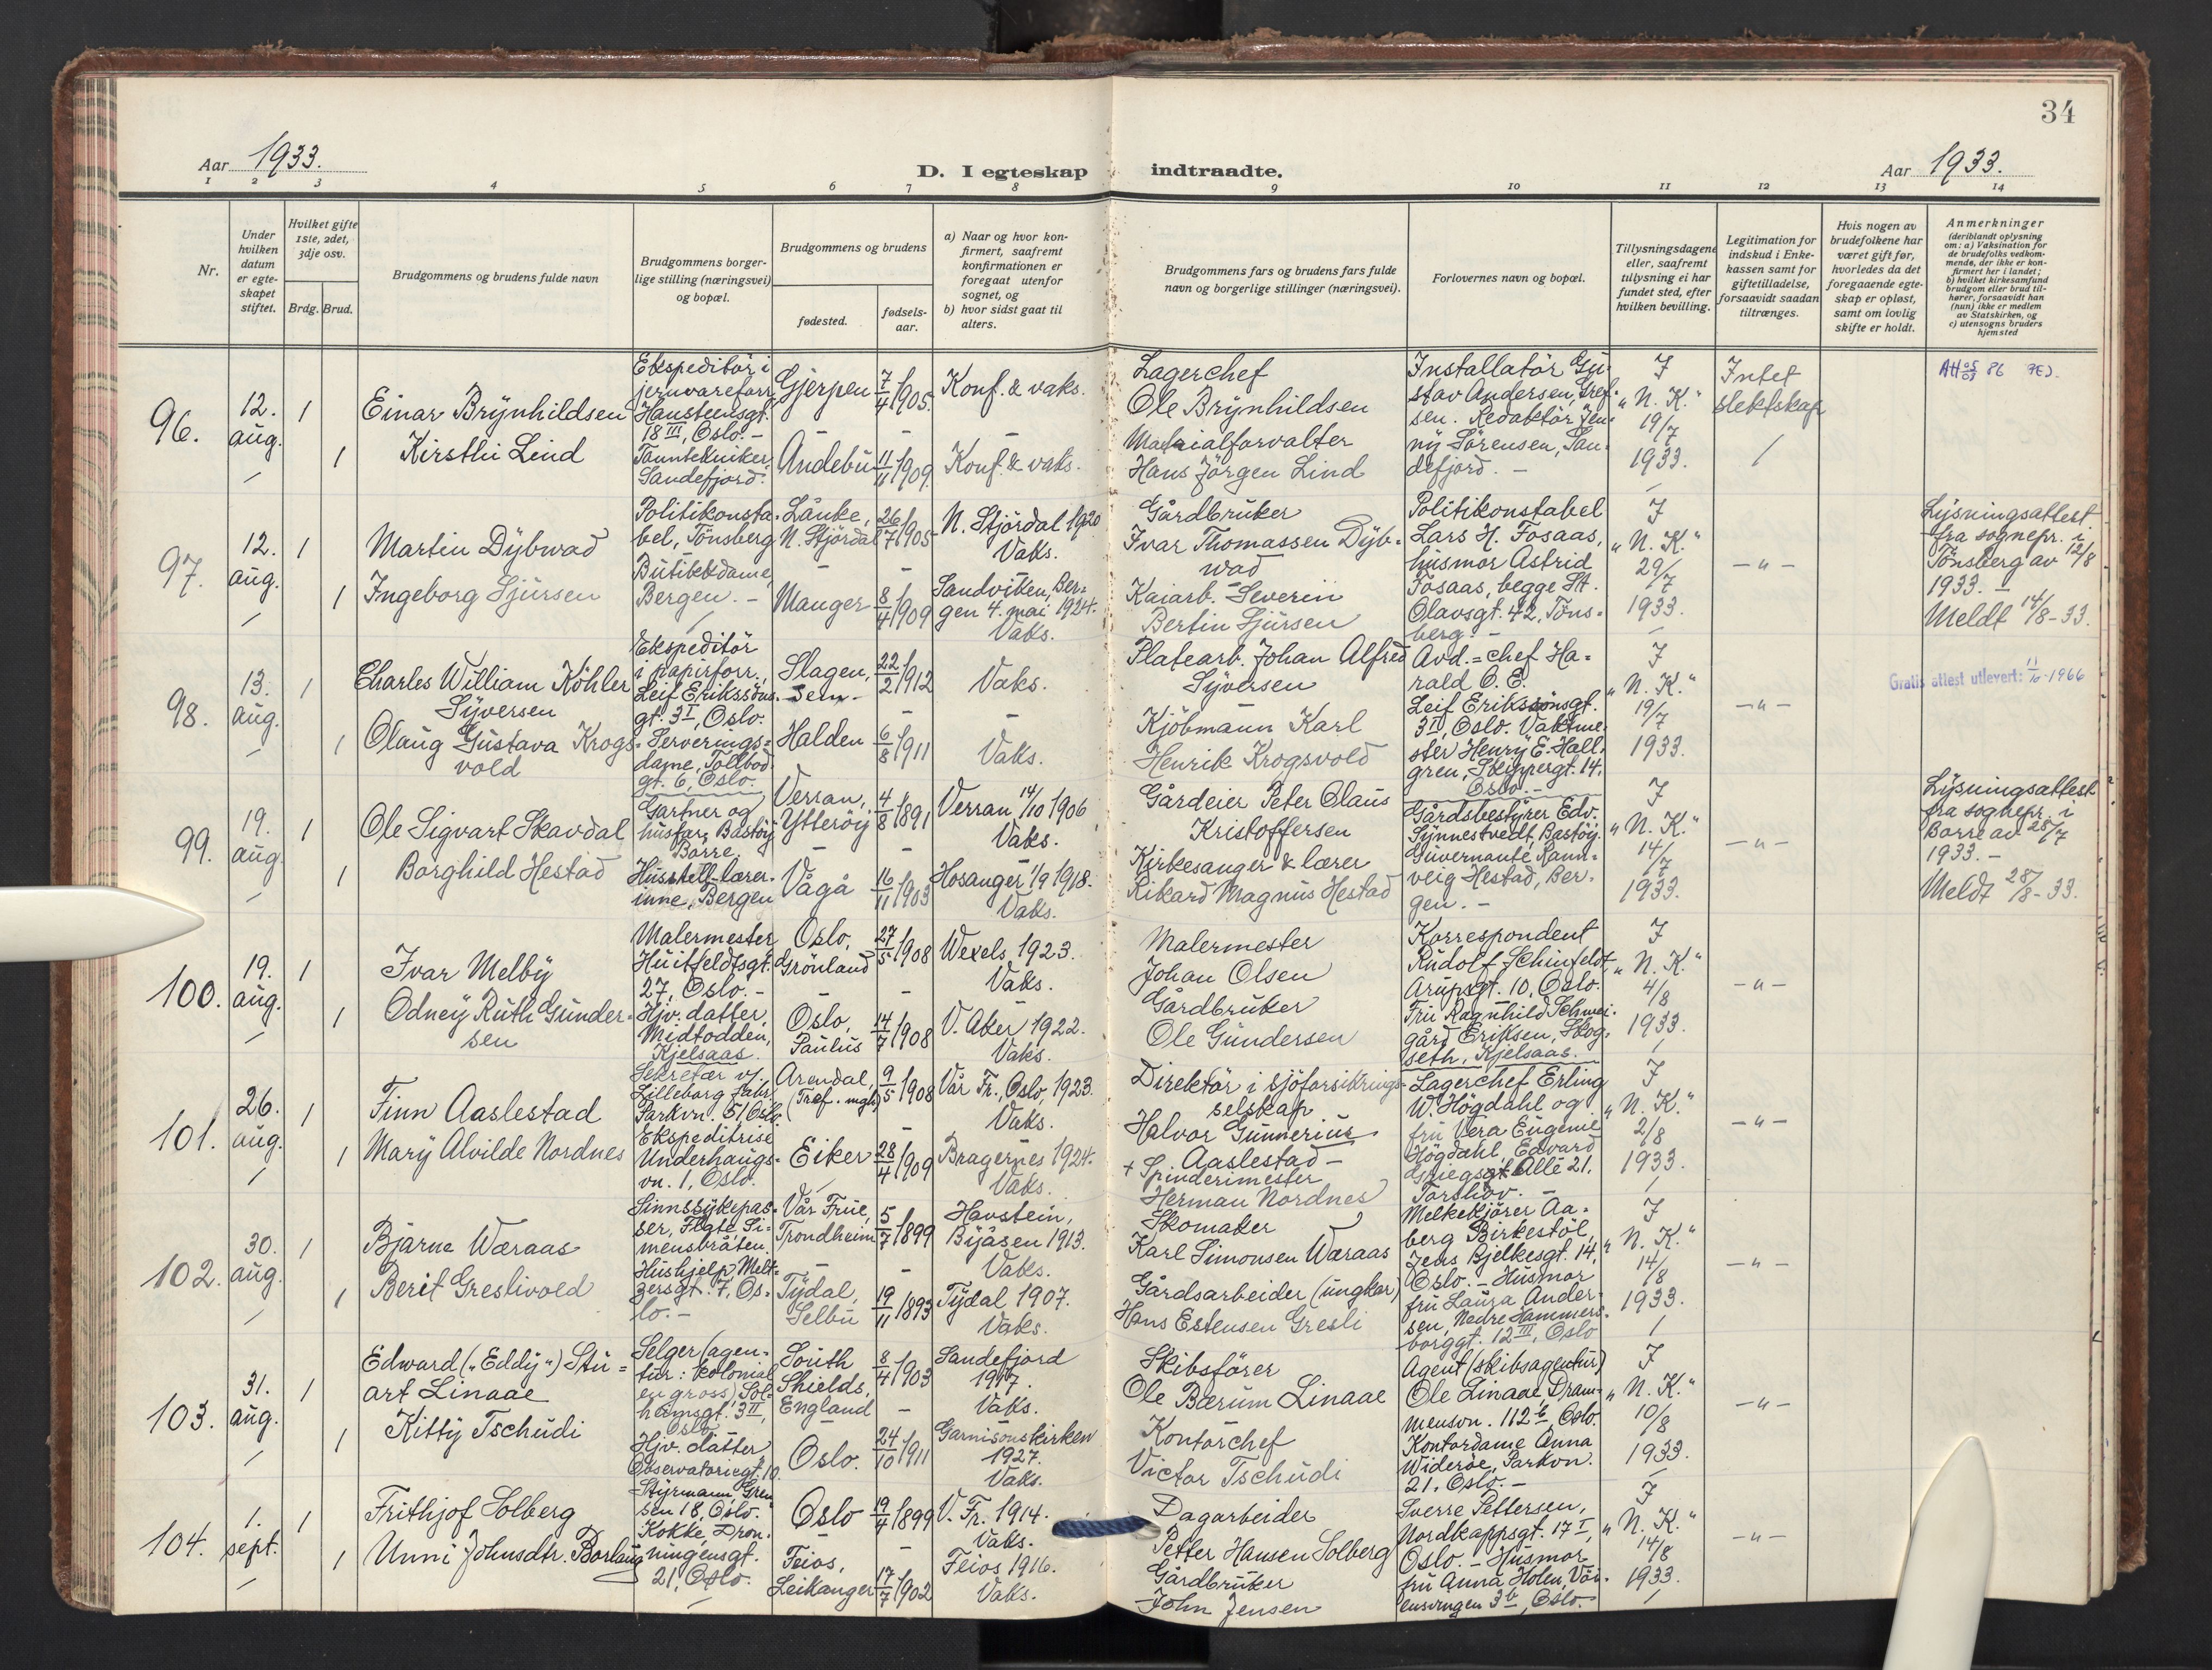 34
Aar 1933.
D. I egteskap indtraadte.
Aar 1933.
1 2 3 4 5 6 7 8 9 10 11 12 13 14
Nr.
Under hvilken datum er egte-skapet stiftet.
Hvilket gifte 1ste, 2det, 3dje osv.
Brdg. Brud.
Brudgommens og brudens fulde navn
Brudgommens borger-lige stilling (næringsvei) og bopæl.
Brudgommens og brudens
fødested.
fødsels-aar.
a) Naar og hvor kon-firmert, saafremt konfirmationen er foregaat utenfor sognet, og
b) hvor sidst gaat til alters.
Brudgommens fars og brudens fars fulde navn og borgerlige stillinger (næringsvei).
Forlovernes navn og bopæl.
Tillysningsdagene eller, saafremt tillysning ei har fundet sted, efter hvilken bevilling.
Legitimation for indskud i Enke-kassen samt for giftetilladelse, forsaavidt saadan tiltrænges.
Hvis nogen av brudefolkene har været gift før, hvorledes da det foregaaende egte-skap er opløst, samt om lovlig skifte er holdt.
Anmerkninger
(deriblandt oplysning om: a) Vaksination for de brudefolks vedkom-mende, der ikke er kon-firmert her i landet; b) hvilket kirkesamfund brudgom eller brud til-hører, forsaavidt han (hun) ikke er medlem av Statskirken, og c) utensogns bruders hjemsted
96.
12. aug.
1
1
Einar Brynhildsen
Kirsthi Lind
Ekspeditör i
jernvareforr.
Hansteensgt.
18 III, Oslo. -
Tanntekniker,
Sandefjord.
Gjerpen 7/4 1905.
Andebu 11/11 1909.
Konf. & vaks.
Konf. & vaks.
Lagerchef
Ole Brynhildsen
Materialforvalter
Hans Jörgen Lind
Installatör Gu-
stav Andersen, Gref-
sen. Redaktör Jen-
ny Sörensen, San-
defjord. -
J
"N. K."
19/7
1933.
Intet
slektskap
97.
12. aug.
1
1
Martin Dybwad
Ingeborg Sjursen
Politikonsta-
bel, Tönsberg
Butikkdame,
Bergen. -
Lånke,
N. Stjördal 26/7 1905
Manger 8/4 1909
N. Stjördal 1920
Vaks.
Sandviken, Ber-
gen 4. mai 1924.
Vaks.
Gårdbruker
Ivar Thomassen Dyb-
wad
Kaiarb. Severin
Bertin Sjursen
Politikonstabel
Lars H. Fosaas,
husmor Astrid
Fosaas, begge St.
Olavsgt. 42, Töns-
berg. -
J
"N. K."
29/7
1933.
- " -
Lysningsattest
fra sognepr. i
Tönsberg av 12/8
1933. -
Meldt 14/8-33.
98.
13. aug.
1
1
Charles William Köhler
Syversen
Olaug Gustava Krogs-
vold
Ekspeditör
i papirforr.,
Leif Erikssöns
gt. 3 I, Oslo.
Serverings-
dame, Tollbod
gt. 6, Oslo.
Slagen,
Sem. 22/2 1912
Halden 6/8 1911
Vaks.
Vaks.
Platearb. Johan Alfred
Syversen
Kjöbmann Karl
Henrik Krogsvold
Avd.-chef Ha-
rald O. E.
Leif Erikssönsgt.
3 II, Oslo. Vaktme-
ster Henry E. Hall-
gren, Skippergt. 14,
Oslo. -
J
"N. K."
19/7
1933.
- " -
Gratis attest utlevert: 11/10-1966
99.
19. aug.
1
1
Ole Sigvart Skavdal
Borghild Hestad
Gartner og
husfar, Bastöy,
Borre.
Husstell-lærer-
inne, Bergen
Verran,
Ytteröy 4/8 1891
Vågå 16/11 1903
Verran 14/10 1906
Vaks.
Hosanger 1/9 1918.
Vaks.
Gårdeier Peter Olaus
Kristoffersen
Kirkesanger & lærer
Rikard Magnus Hestad
Gårdsbestyrer Edv.
Synnestvedt, Bastöy.
Guvernante Rann-
veig Hestad, Ber-
gen. -
J
"N. K."
14/7
1933.
- " -
Lysningsattest
fra sognepr. i
Borre av 28/7
1933. -
Meldt 28/8-33.
100.
19. aug.
1
1
Ivar Melby
Odney Ruth Gunder-
sen
Malermester
Huitfeldtsgt.
27, Oslo. -
Hjv. datter,
Midtodden,
Kjelsaas.
Oslo,
Grönland 27/5 1908
Oslo,
Paulus 14/7 1908
Wexels, 1923.
Vaks.
V. Aker 1922.
Vaks.
Malermester
Johan Olsen
Gårdbruker
Ole Gundersen
Korrespondent
Rudolf Schinfeldt,
Arupsgt. 10, Oslo.
Fru Ragnhild Schwei-
gård Eriksen, Skog-
seth, Kjelsaas.
J
"N. K."
4/8
1933.
- " -
101.
26. aug.
1
1
Finn Aaslestad
Mary Alvilde Nordnes
Sekretær v/
Lilleborg Fabr.
Parkvn. 51 Oslo.
Ekspeditrise
Underhaugs-
vn. 1, Oslo.
Arendal,
(Tref. mgh.) 9/5 1908
Eiker 28/4 1909
Vår Fr., Oslo, 1923.
Vaks.
Bragernes 1924.
Vaks.
Direktör i sjöforsikrings-
selskap
Halvor Gunnerius
Aaslestad -
+ Spinderimester
Herman Nordnes
Lagerchef Erling
W. Högdahl og
fru Vera Eugenie
Högdahl, Edvard
Griegsgt. Allé 21,
Torshov. -
J
"N. K."
2/8
1933.
- " -
102.
30. aug.
1
1
Bjarne Wæraas
Berit Greslivold
Sinnssykepas-
ser, Flate, Si-
mensbråten.
Hushjelp, Melt-
zersgt. 7, Os-
lo. -
Vår Frue,
Trondheim 5/7 1899
Tydal,
Selbu 19/11 1893
Havstein,
Byåsen 1913.
Vaks.
Tydal 1907.
Vaks.
Skomaker
Karl Simonsen Wæraas
Gårdsarbeider (ungkar)
Hans Estensen Gresli
Melkekjörer Aa-
berg Birkestöl,
Jens Bjelkesgt. 14,
Oslo. - Husmor
fru Laura Ander-
sen, Nedre Hammers-
borggt. 12 III, Oslo
J
"N. K."
14/8
1933.
- " -
103.
31. aug.
1
1
Edward ("Eddy") Stu-
art Linaae
Kitty Tschudi
Selger (agen-
tur: kolonial
en gross), Sol-
heimsgt. 3 II,
Oslo
Hjv. datter
Observatoriegt. 10
South
Shields,
England 8/4 1903
Oslo. 24/10 1911
Sandefjord
1917.
Vaks.
Garnisonskirken
1927.
Vaks.
Skibsförer
Ole Bærum Linaae
Kontorchef
Victor Tschudi
Agent (skibsagentur)
Ole Linaae, Dram-
mensvn. 112 b, Oslo
Kontordame Anna
Wideröe, Parkvn.
21, Oslo. -
J
"N. K."
10/8
1933.
- " -
104.
1. sept.
1
1
Frithjof Solberg
Unni Johnsdtr. Borlaug
Styrmann, Gren
sen 18, Oslo.
Kokke, Dron-
ningensgt.
21, Oslo.
Oslo 19/4 1899
Feios,
Leikanger 17/7 1902
V. Fr. 1914.
Vaks.
Feios 1916.
Vaks.
Dagarbeider
Petter Hansen Solberg
Gårdbruker
John Jensen
Sverre Pettersen,
Nordkappsgt. 17 I,
Oslo. - Husmor
fru Anna Holm,
3 b, Oslo. -
J
"N. K."
14/8
1933.
- " -